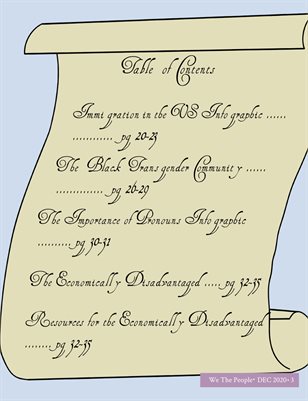 Table of Contents
Immi gration in the US Info graphic ......
............. pg 20-23
The Black Trans gender Communit y ......
.............. pg 26-29
The Importance of Pronouns Info graphic
.......... pg 30-31
The Economicall y Disadvantaged ..... pg 32-35
Resources for the Economicall y Disadvantaged
........ pg 32-35
We The People• DEC 2020• 3